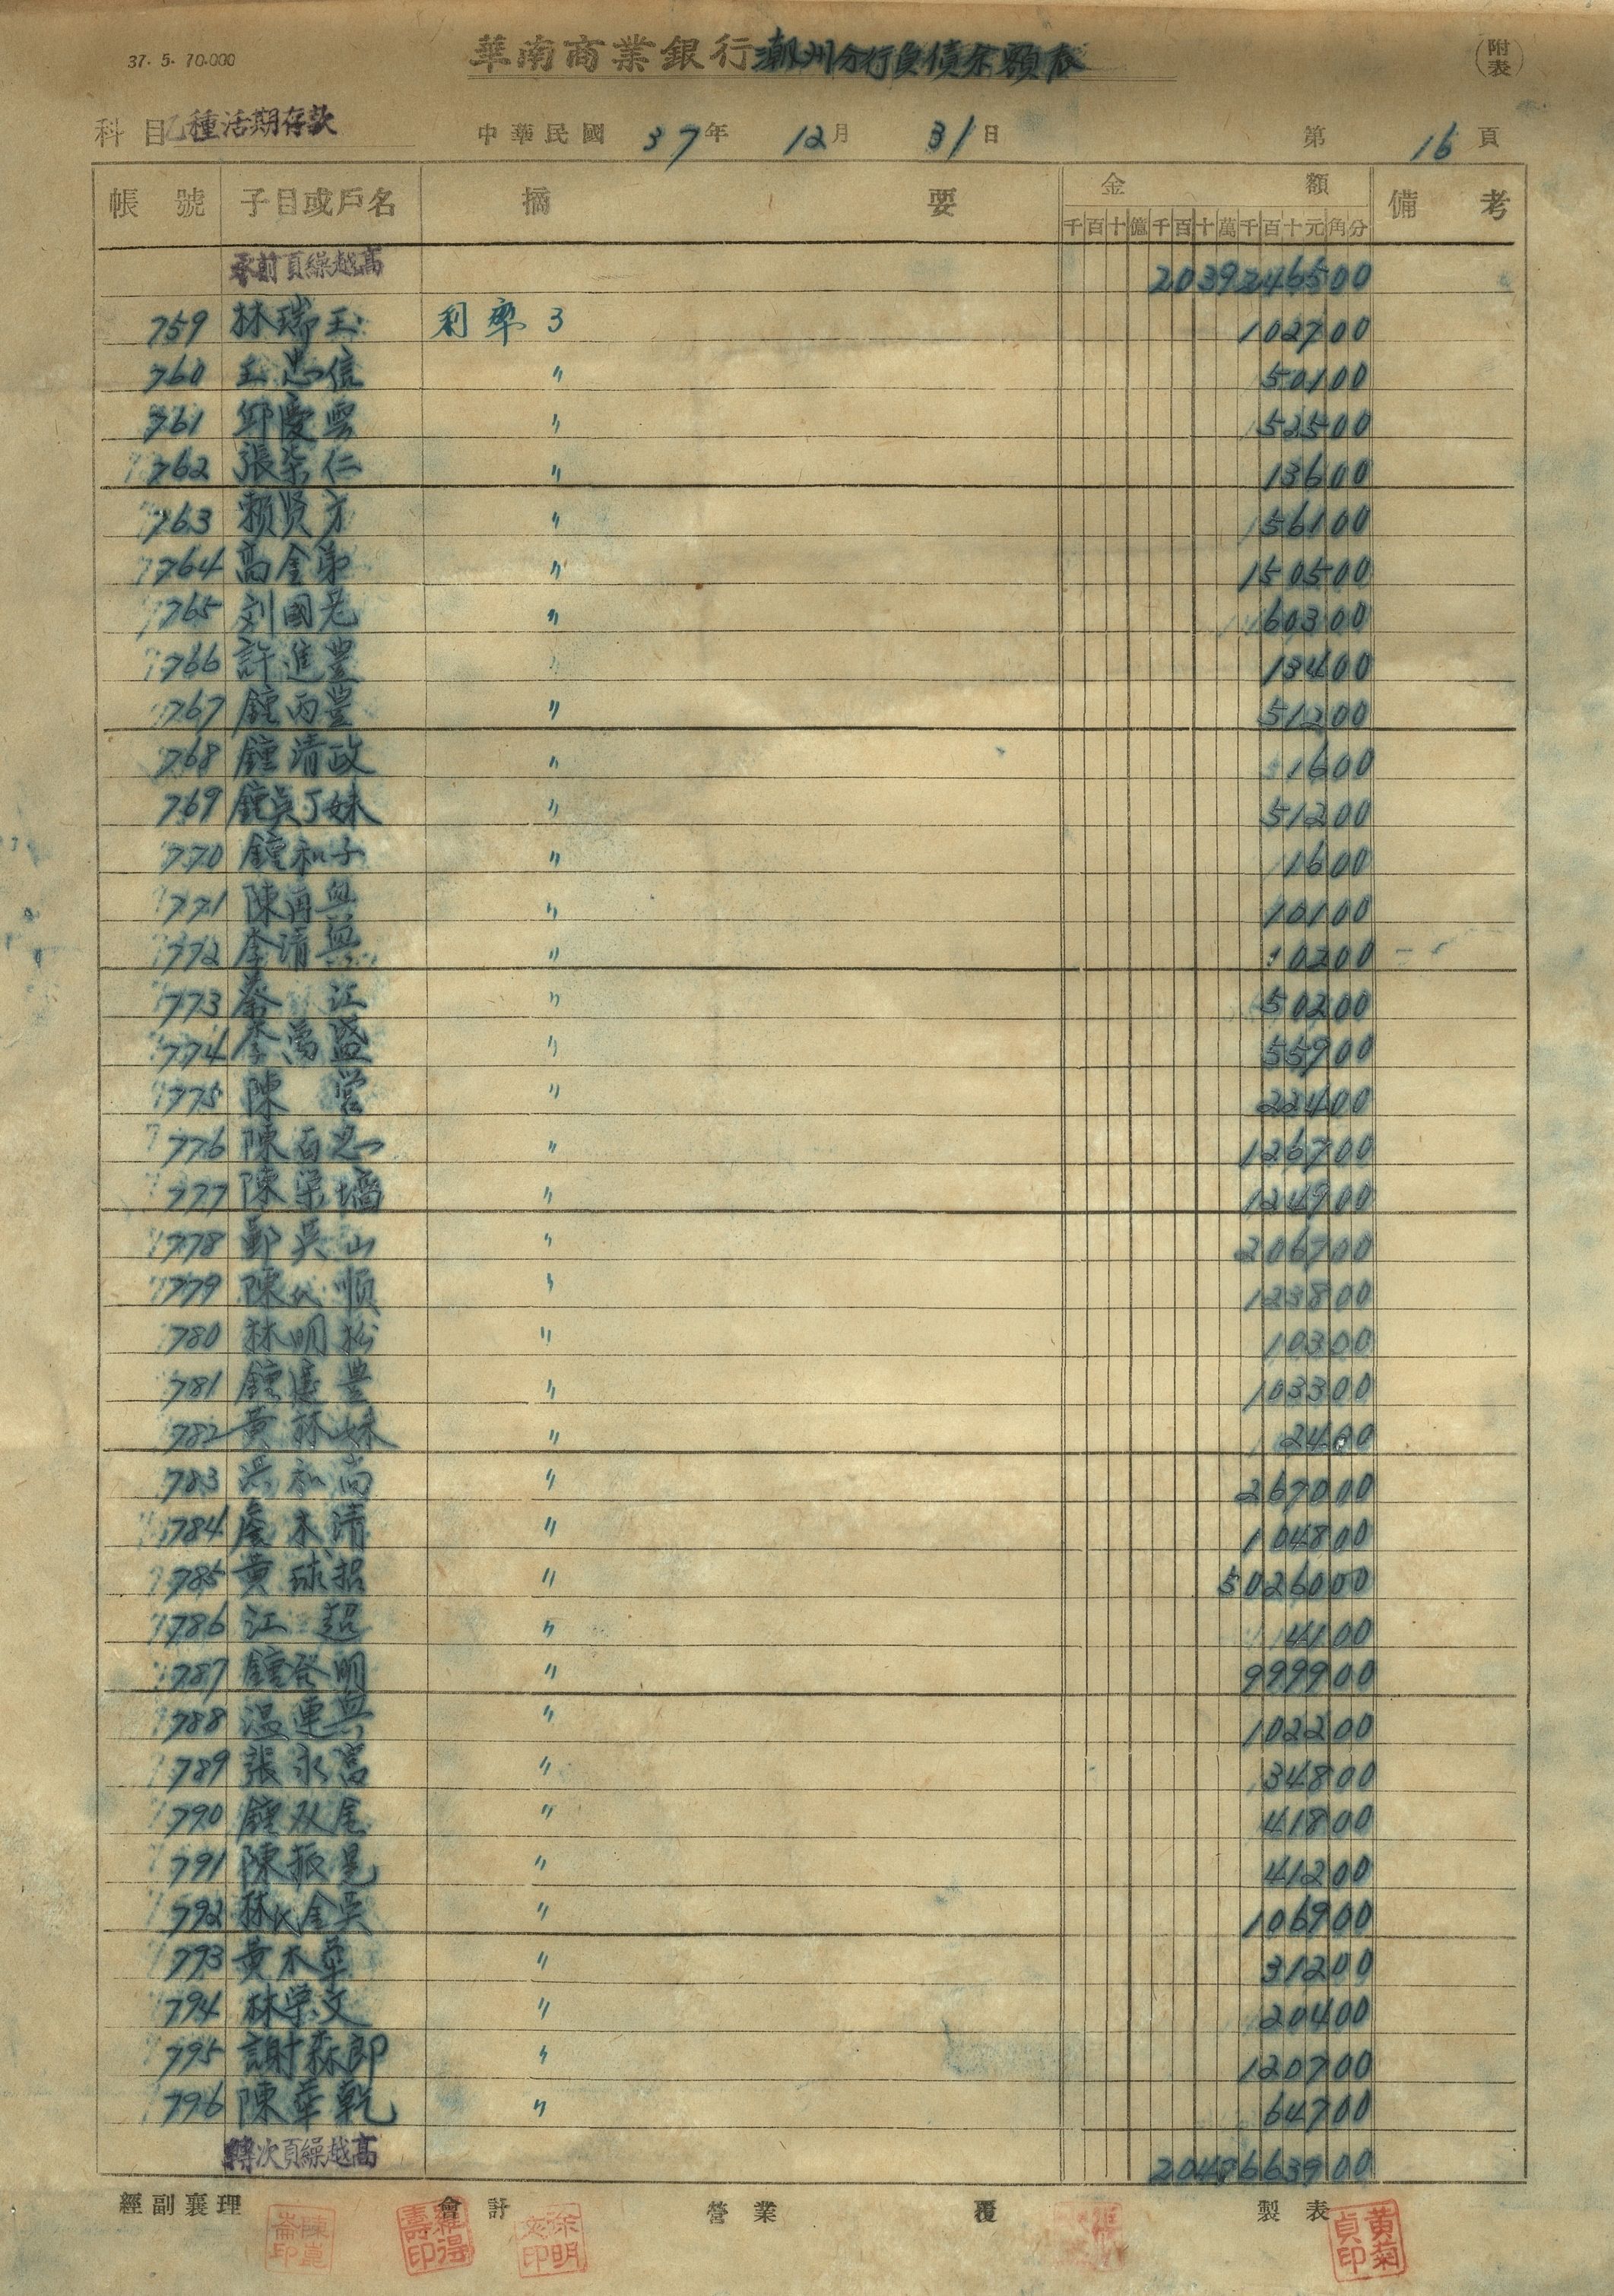 37. 5. 70.000
華南商業銀行潮州分行負債余額表
(附表)
科目 乙種活期存款 中華民國 37年 12月 31日 第 16 頁
帳號 子目或戶名 摘要 金額 備考
千百十億千百十萬千百十元角分
承前頁繰越高 2039246500
759 林瑞玉 利率 3 102700
760 王忠信 〃 50100
761 邱慶雲 〃 52500
762 張柒仁 〃 13600
763 賴賢方 〃 56100
764 高金弟 〃 150500
765 刘國光 〃 60300
766 許進豊 13400
767 鍾丙豊 〃 51200
768 鍾清政 〃 1600
769 鍾吳丁妹 〃 51200
770 鍾和子 〃 1600
771 陳再興 〃 10100
772 李清興 〃 10200
773 蔡江 〃 50200
774 李萬盛 〃 55900
775 陳営 〃 22400
776 陳百忠 〃 126700
777 陳栄墻 〃 124900
778 鄭吳山 〃 206700
779 陳氏順 〃 123800
780 林明松 〃 10300
781 鍾慶豊 〃 103300
782 黃林妹 〃 2400
783 洪和尚 〃 267000
784 詹木清 〃 104800
785 黃球招 〃 5026000
786 江超 〃 4100
787 鍾發明 〃 999900
788 温連興 〃 102200
789 張永富 〃 34800
790 鍾双金 〃 41800
791 陳振晃 〃 41200
792 林氏金吳 〃 106900
793 黃木華 〃 31200
794 林栄文 〃 20400
795 謝森郎 〃 120700
796 陳華乾 〃 64700
轉次頁繰越高 2048663900
經副襄理 會計 營業 覆 製表
黃菊貞印